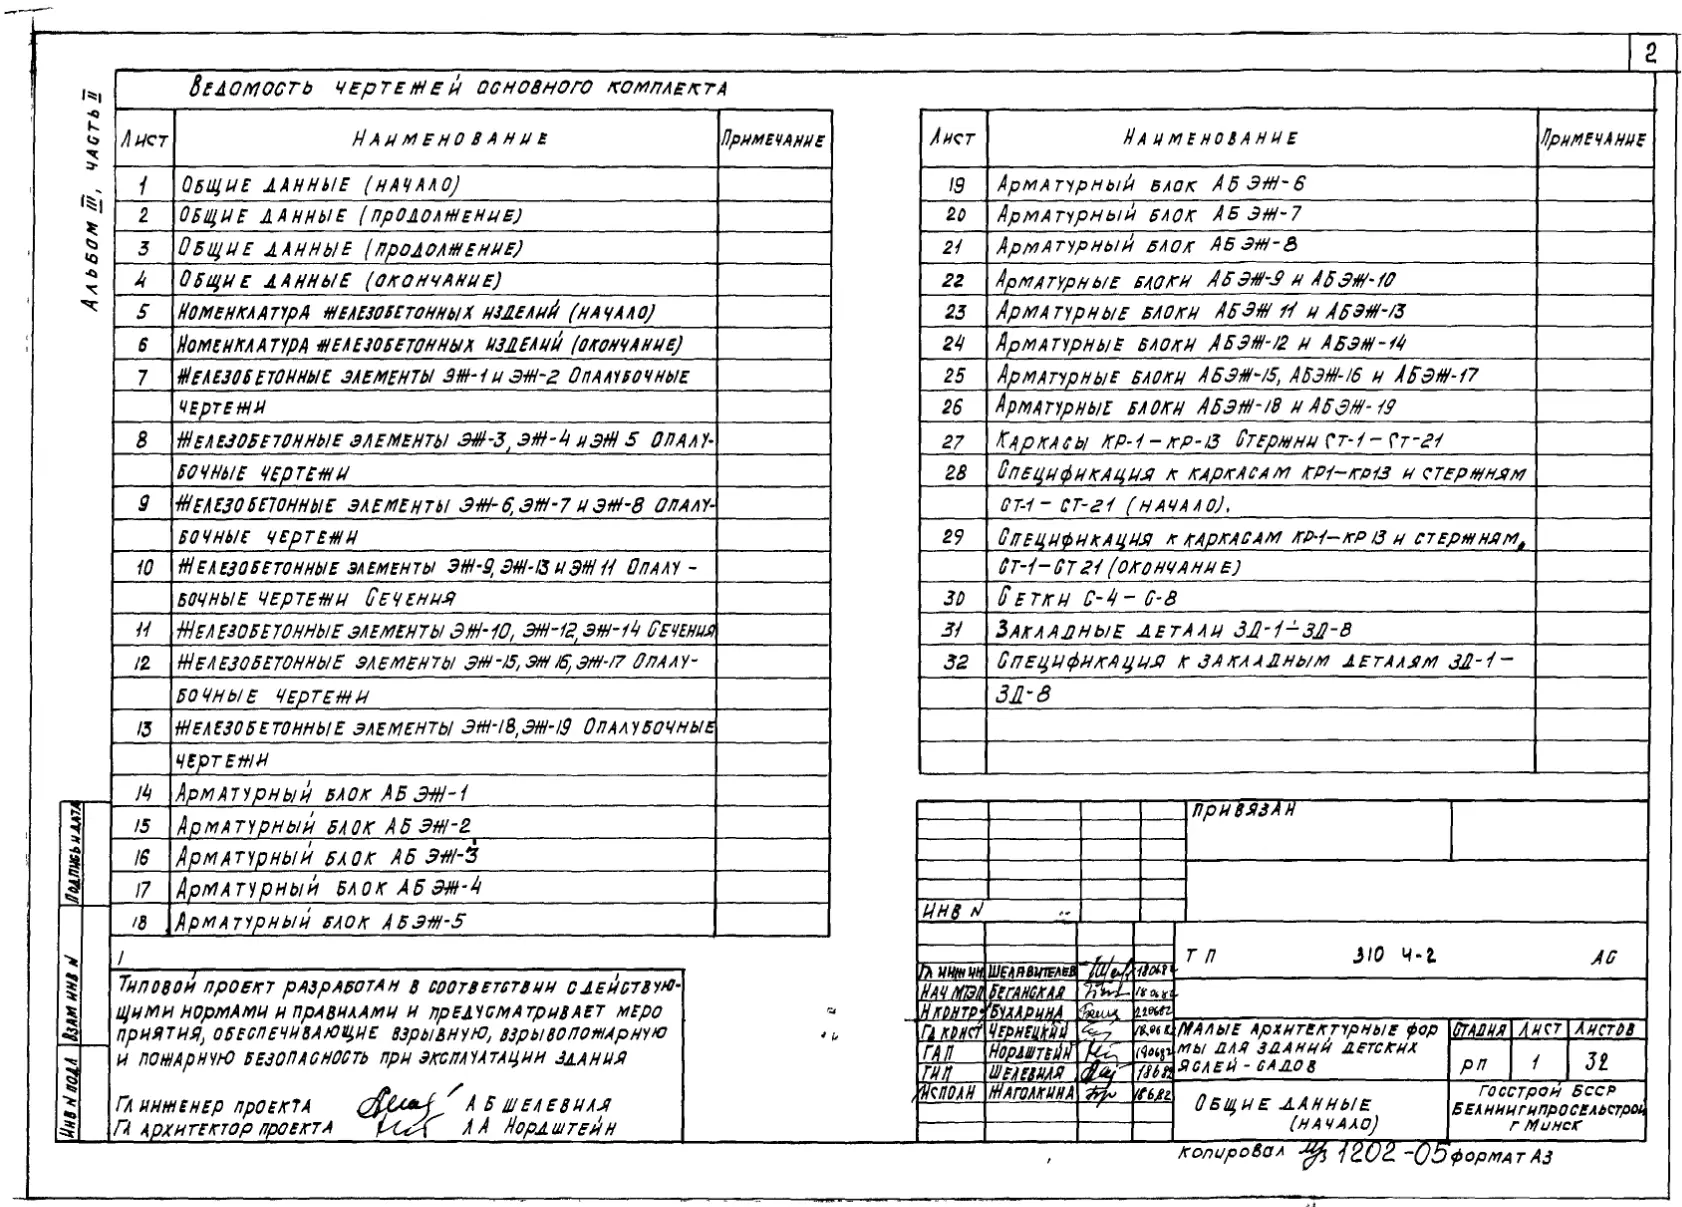 2
Альбом III, часть II
Ведомость чертежей основного комплекта
Лист Наименование Примечание
1 Общие данные (начало)
2 Общие данные (продолжение)
3 Общие данные (продолжение)
4 Общие данные (окончание)
5 Номенклатура железобетонных изделий (начало)
6 Номенклатура железобетонных изделий (окончание)
7 Железобетонные элементы ЭЖ-1 и ЭЖ-2 Опалубочные
чертежи
8 Железобетонные элементы ЭЖ-3, ЭЖ-4 и ЭЖ 5 Опалу-
бочные чертежи
9 Железобетонные элементы ЭЖ-6, ЭЖ-7 и ЭЖ-8 Опалу-
бочные чертежи
10 Железобетонные элементы ЭЖ-9, ЭЖ-13 и ЭЖ 11 Опалу-
бочные чертежи Сечения
11 Железобетонные элементы ЭЖ-10, ЭЖ-12, ЭЖ-14 Сечения
12 Железобетонные элементы ЭЖ-15, ЭЖ 16, ЭЖ-17 Опалу-
бочные чертежи
13 Железобетонные элементы ЭЖ-18, ЭЖ-19 Опалубочные
чертежи
14 Арматурный блок АБ ЭЖ-1
15 Арматурный блок АБ ЭЖ-2
16 Арматурный блок АБ ЭЖ-3
17 Арматурный блок АБ ЭЖ-4
18 Арматурный блок АБ ЭЖ-5
Лист Наименование Примечание
19 Арматурный блок АБ ЭЖ-6
20 Арматурный блок АБ ЭЖ-7
21 Арматурный блок АБ ЭЖ-8
22 Арматурные блоки АБ ЭЖ-9 и АБ ЭЖ-10
23 Арматурные блоки АБ ЭЖ 11 и АБЭЖ-13
24 Арматурные блоки АБЭЖ-12 и АБЭЖ-14
25 Арматурные блоки АБЭЖ-15, АБЭЖ-16 и АБЭЖ-17
26 Арматурные блоки АБЭЖ-18 и АБЭЖ-19
27 Каркасы КР-1 – КР-13 Стержни Ст-1 – Ст-21
28 Спецификация к каркасам КР1–КР13 и стержням
СТ-1 – СТ-21 (начало).
29 Спецификация к каркасам КР-1–КР 13 и стержням
СТ-1–СТ 21 (окончание)
30 Сетки С-4 – С-8
31 Закладные детали ЗД-1–ЗД-8
32 Спецификация к закладным деталям ЗД-1 –
ЗД-8
Типовой проект разработан в соответствии с действую-
щими нормами и правилами и предусматривает меро
приятия, обеспечивающие взрывную, взрывопожарную
и пожарную безопасность при эксплуатации здания
Гл инженер проекта А Б Шелевиля
Гл архитектор проекта Л А Нордштейн
Подпись и дата
Взам инв N
Инв N подл
Привязан
Инв N
ТП 310 Ч-2 АС
Гл инж ин
Нач МТЭП Беганская
Н контр Бухарина
Гл конст Чернецкий
ГАП Нордштейн
ГИП Шелевиля
Исполн Жаголкина
Малые архитектурные фор
мы для зданий детских
яслей-садов
Стадия Лист Листов
РП 1 32
Общие данные
(начало)
Госстрой БССР
Белниигипросельстрой
г Минск
Копировал 1202-05 формат А3